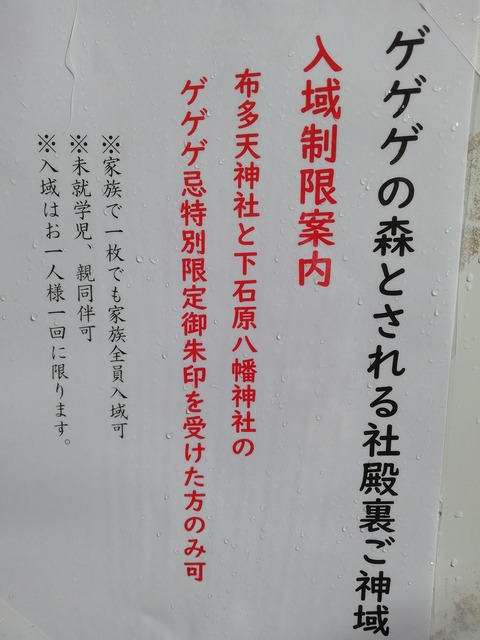 ゲゲゲの森とされる社殿裏ご神域
入域制限案内
布多天神社と下石原八幡神社の
ゲゲゲ忌特別限定御朱印を受けた方のみ可
※家族で一枚でも家族全員入域可
※未就学児、親同伴可
※入域はお一人様一回に限ります。